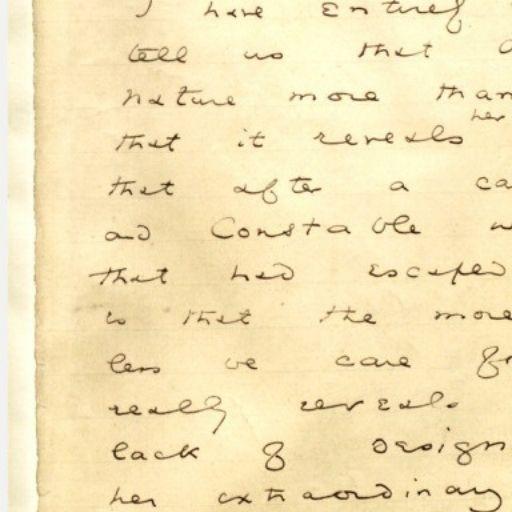 I have
tell us that
nature more than
her
that it reveals
that after a
and Constable
that had escaped
is that the more
less we care
really reveals
lack of design
her extraordinary